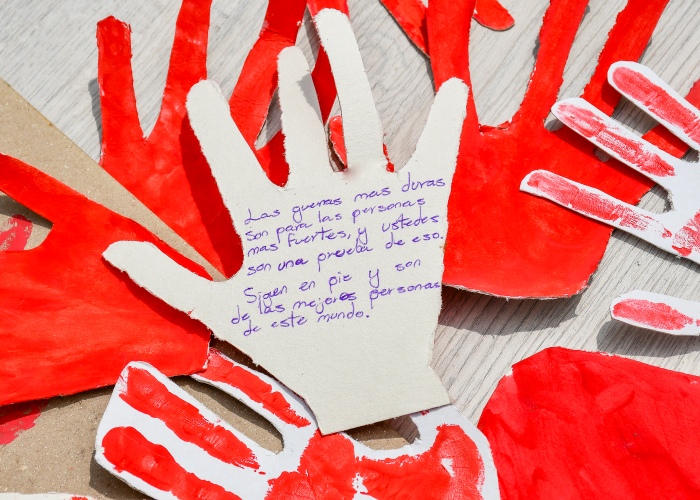 Las guerras mas duras
son para las personas
mas fuertes, y ustedes
son una prueba de eso.
Siguen en pie y son
de las mejores personas
de este mundo.